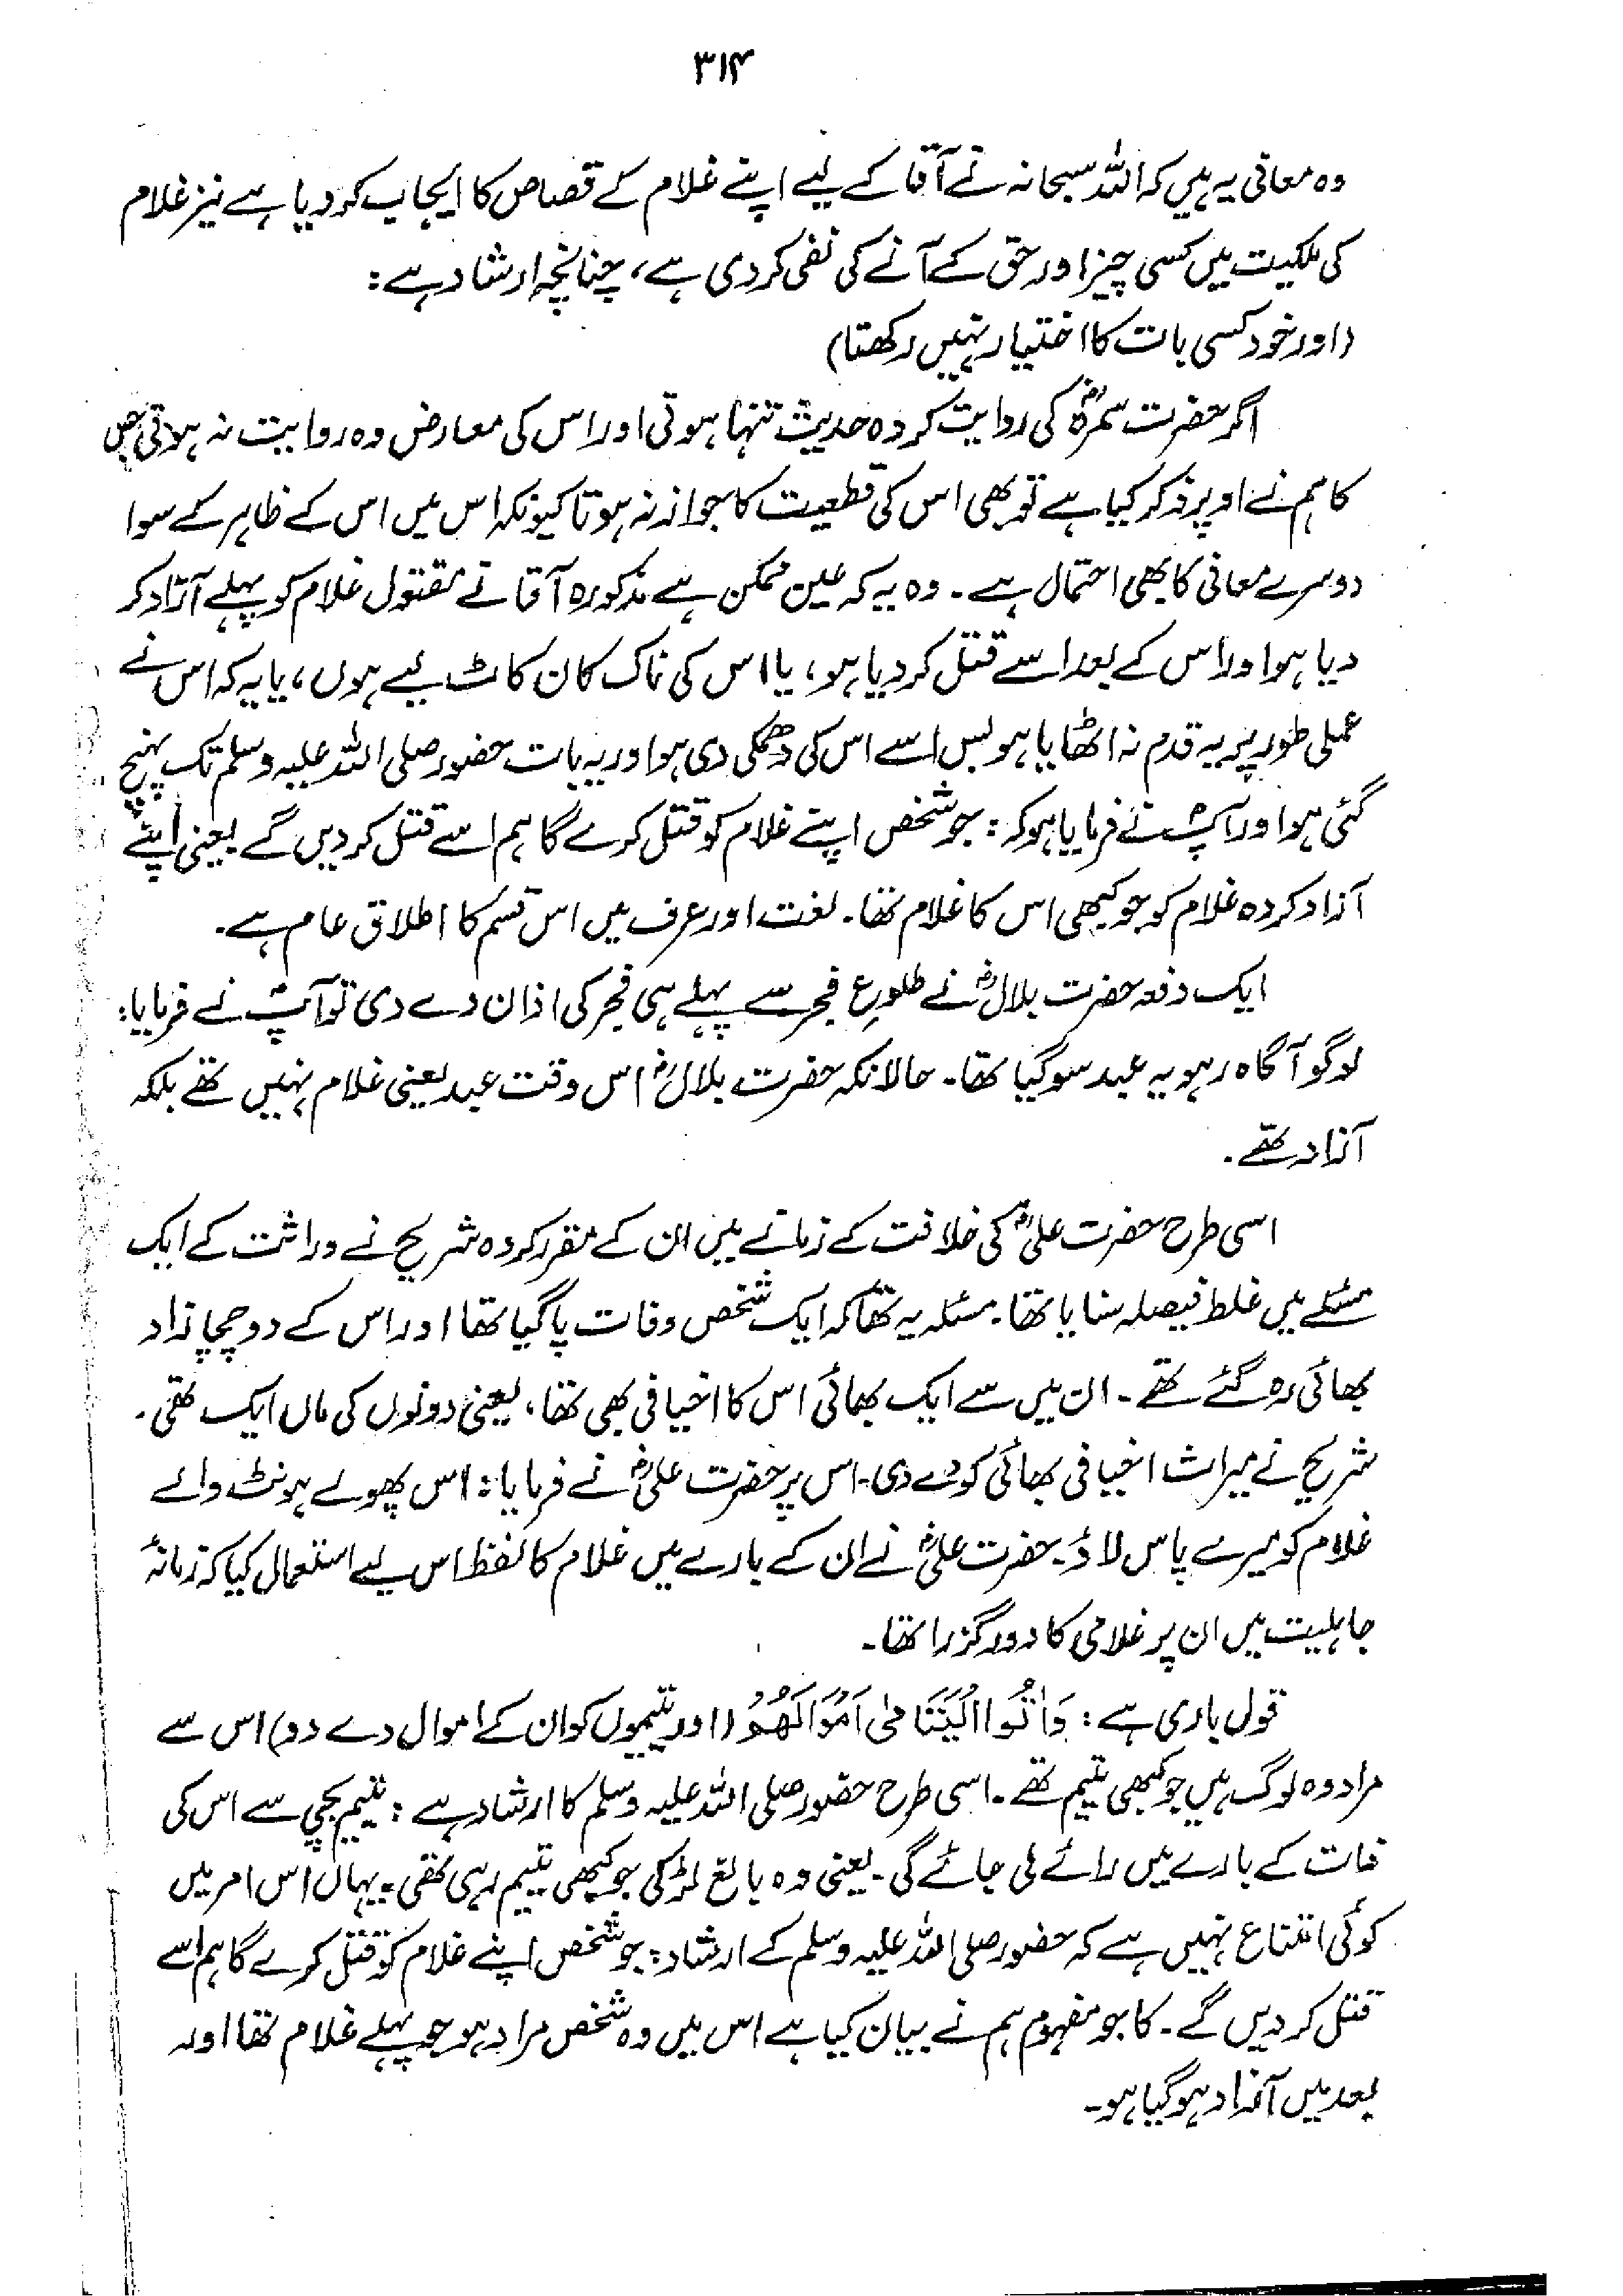 ۳۱۴
وہ معانی یہ ہیں کہ اللہ سبحانہ نے آقا کے لیے اپنے غلام کے قصاص کا ایجاب کر دیا ہے نیز غلام
کی ملکیت میں کسی چیز اور حق کے آنے کی نفی کر دی ہے، چنانچہ ارشاد ہے:
(اور خود کسی بات کا اختیار نہیں رکھتا)
اگر حضرت سمرہؓ کی روایت کردہ حدیث تنہا ہوتی اور اس کی معارض وہ روایت نہ ہوتی جس
کا ہم نے اوپر ذکر کیا ہے تو بھی اس کی قطعیت کا جواز نہ ہوتا کیونکہ اس میں اس کے ظاہر کے سوا
دوسرے معانی کا بھی احتمال ہے۔ وہ یہ کہ عین ممکن ہے مذکورہ آقا نے مقتول غلام کو پہلے آزاد کر
دیا ہو اور اس کے بعد اسے قتل کر دیا ہو، یا اس کی ناک کان کاٹ لیے ہوں، یا یہ کہ اس نے
عملی طور پر یہ قدم نہ اٹھایا ہو بس اسے اس کی دھمکی دی ہو اور یہ بات حضور صلی اللہ علیہ وسلم تک پہنچ
گئی ہو اور آپؐ نے فرمایا ہو کہ: جو شخص اپنے غلام کو قتل کرے گا ہم اسے قتل کر دیں گے یعنی اپنے
آزاد کردہ غلام کو جو کبھی اس کا غلام تھا۔ لغت اور عرف میں اس قسم کا اطلاق عام ہے۔
ایک دفعہ حضرت بلالؓ نے طلوعِ فجر سے پہلے ہی فجر کی اذان دے دی تو آپؐ نے فرمایا:
لوگو آگاہ رہو یہ عبد سو گیا تھا۔ حالانکہ حضرت بلالؓ اس وقت عبد یعنی غلام نہیں تھے بلکہ
آزاد تھے۔
اسی طرح حضرت علیؓ کی خلافت کے زمانے میں ان کے مقرر کردہ شریح نے وراثت کے ایک
مسئلے میں غلط فیصلہ سنایا تھا۔ مسئلہ یہ تھا کہ ایک شخص وفات پا گیا تھا اور اس کے دو چچا زاد
بھائی رہ گئے تھے۔ ان میں سے ایک بھائی اس کا اخیافی بھی تھا، یعنی دونوں کی ماں ایک تھی۔
شریح نے میراث اخیافی بھائی کو دے دی۔ اس پر حضرت علیؓ نے فرمایا: اس پھولے ہونٹ والے
غلام کو میرے پاس لاؤ۔ حضرت علیؓ نے ان کے بارے میں غلام کا لفظ اس لیے استعمال کیا کہ زمانۂ
جاہلیت میں ان پر غلامی کا دور گزرا تھا۔
قول باری ہے: وَاٰتُوا الْیَتَامٰی اَمْوَالَهُمْ (اور یتیموں کو ان کے اموال دے دو) اس سے
مراد وہ لوگ ہیں جو کبھی یتیم تھے۔ اسی طرح حضور صلی اللہ علیہ وسلم کا ارشاد ہے: یتیم بچی سے اس کی
ذات کے بارے میں رائے لی جائے گی۔ یعنی وہ بالغ لڑکی جو کبھی یتیم رہی تھی۔ یہاں اس امر میں
کوئی امتناع نہیں ہے کہ حضور صلی اللہ علیہ وسلم کے ارشاد: جو شخص اپنے غلام کو قتل کرے گا ہم اسے
قتل کر دیں گے۔ کا جو مفہوم ہم نے بیان کیا ہے اس میں وہ شخص مراد ہو جو پہلے غلام تھا اور
بعد میں آزاد ہو گیا ہو۔